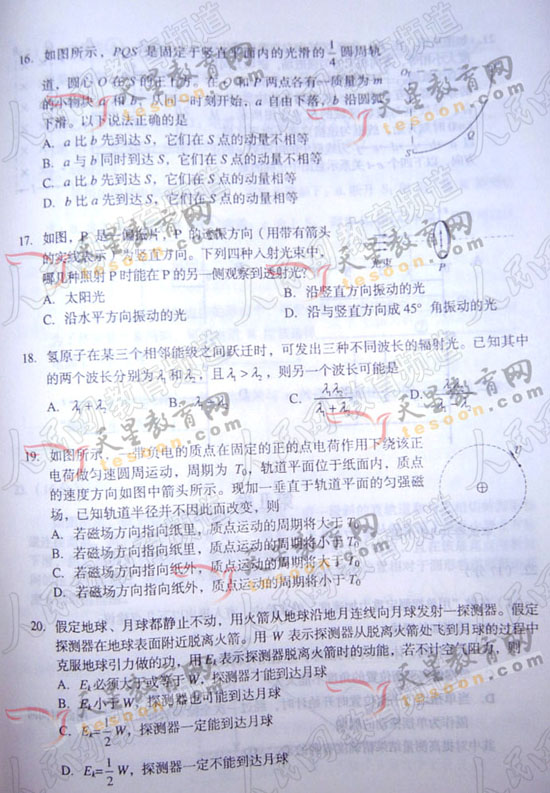 16. 如图所示，PQS 是固定于竖直平面内的光滑的 1/4 圆周轨
道，圆心 O 在 S 的正上方，在 O 和 P 两点各有一质量为 m
的小物块 a 和 b，从同一时刻开始，a 自由下落，b 沿圆弧
下滑。以下说法正确的是
A. a 比 b 先到达 S，它们在 S 点的动量不相等
B. a 与 b 同时到达 S，它们在 S 点的动量不相等
C. a 比 b 先到达 S，它们在 S 点的动量相等
D. b 比 a 先到达 S，它们在 S 点的动量相等
17. 如图，P 是一偏振片，P 的透振方向（用带有箭头
的实线表示）为竖直方向。下列四种入射光束中，
哪几种照射 P 时能在 P 的另一侧观察到透射光？
A. 太阳光
B. 沿竖直方向振动的光
C. 沿水平方向振动的光
D. 沿与竖直方向成 45° 角振动的光
P
18. 氢原子在某三个相邻能级之间跃迁时，可发出三种不同波长的辐射光。已知其中
的两个波长分别为 λ₁ 和 λ₂，且 λ₁＞λ₂，则另一个波长可能是
A. λ₁+λ₂
B. λ₁-λ₂
C. λ₁λ₂/(λ₁+λ₂)
D. λ₁λ₂/(λ₁-λ₂)
19. 如图所示，一带负电的质点在固定的正的点电荷作用下绕该正
电荷做匀速圆周运动，周期为 T₀，轨道平面位于纸面内，质点
的速度方向如图中箭头所示。现加一垂直于轨道平面的匀强磁
场，已知轨道半径并不因此而改变，则
A. 若磁场方向指向纸里，质点运动的周期将大于 T₀
B. 若磁场方向指向纸里，质点运动的周期将小于 T₀
C. 若磁场方向指向纸外，质点运动的周期将大于 T₀
D. 若磁场方向指向纸外，质点运动的周期将小于 T₀
20. 假定地球、月球都静止不动，用火箭从地球沿地月连线向月球发射一探测器。假定
探测器在地球表面附近脱离火箭。用 W 表示探测器从脱离火箭处飞到月球的过程中
克服地球引力做的功，用 Eₖ 表示探测器脱离火箭时的动能，若不计空气阻力，则
A. Eₖ 必须大于或等于 W，探测器才能到达月球
B. Eₖ 小于 W，探测器也可能到达月球
C. Eₖ=1/2 W，探测器一定能到达月球
D. Eₖ=1/2 W，探测器一定不能到达月球
天星教育网
tesoon.com
人民网教育频道